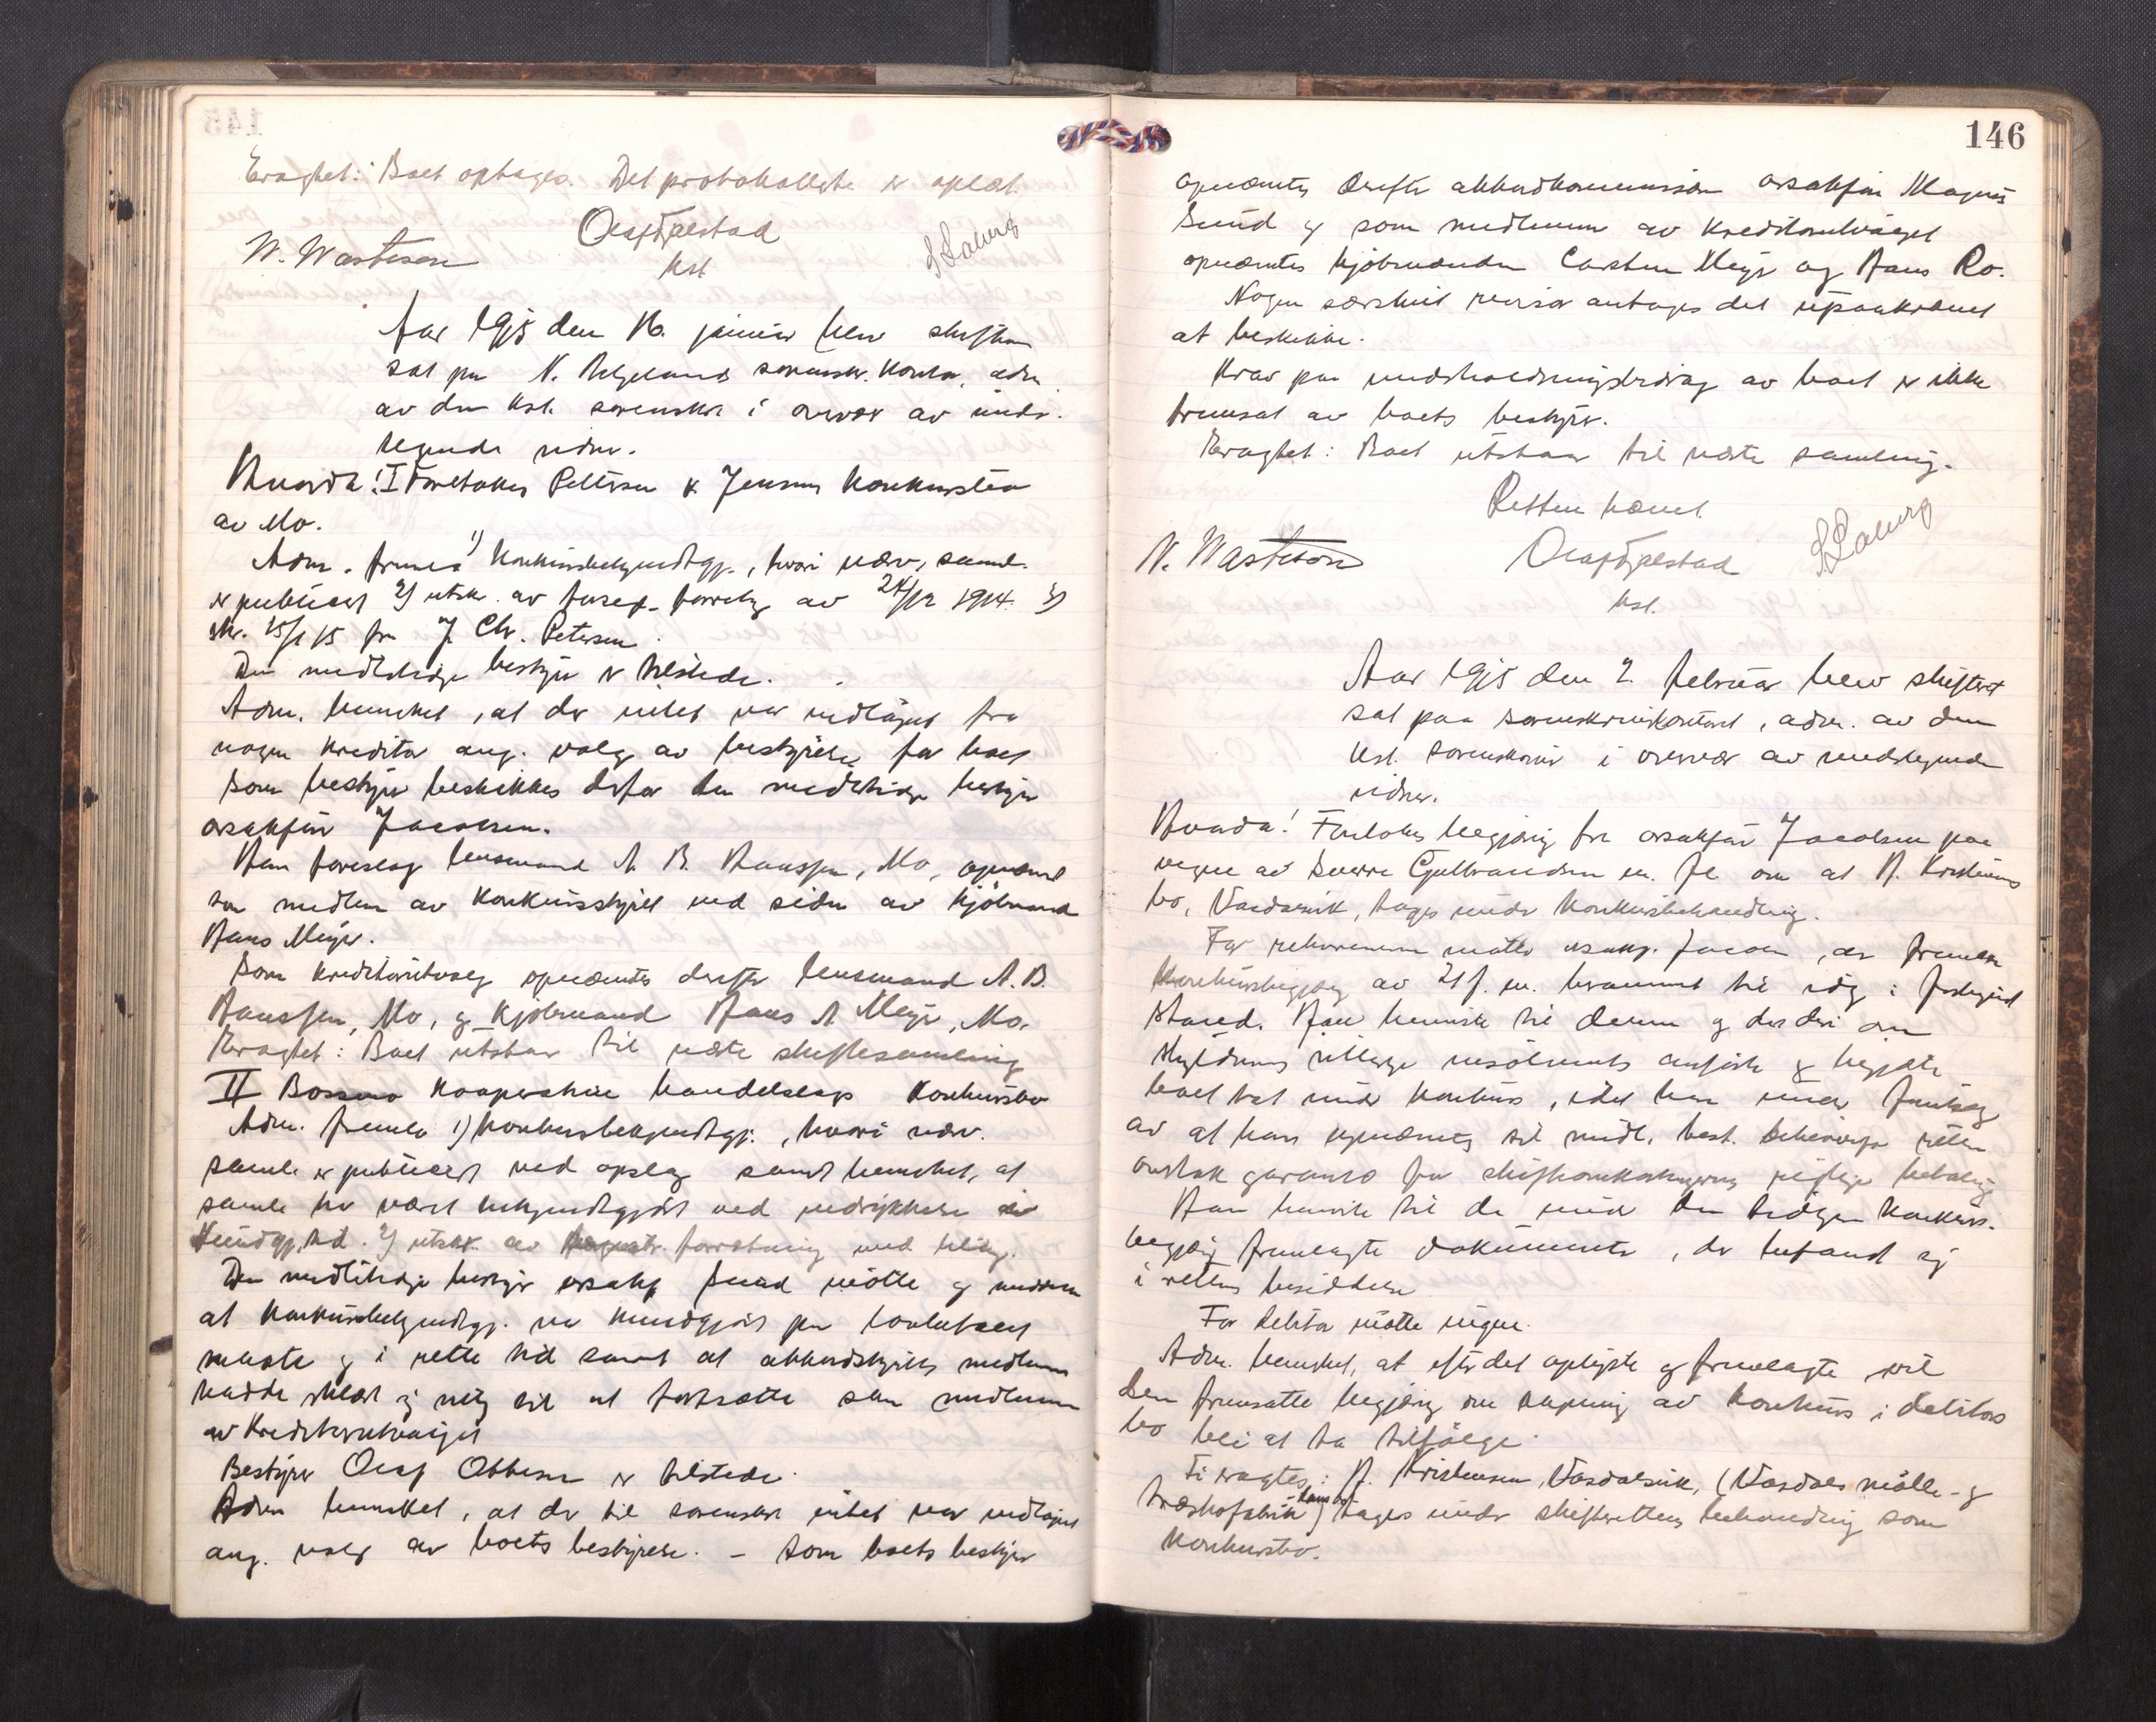 Eragtet: Boet optages. Det protokollerte er oplæst.
Olaf Fjalstad
N. Wasteson
Kst.
Aar 1915 den 16. januar blev skifteret
sat paa N. Helgelands sorenskr. kontor, adm.
av den kst. sorenskr. i overvær av under-
tegnede vidner.
Hvorda! I Foretokes Pettersen & Jensens konkursbo
av Mo.
Adm. fremla 1) konkursbekjendtgj., hvori nærv. samling
er publicert 2) utskr. av forretning av 24/12 1914. 3)
skr. 15/1 15 fra J. Chr. Petersen.
Den midlertidige bestyrer er tilstede.
Adm. bemerket, at der intet var indløpet fra
nogen kreditor ang. valg av bestyrelse for boet
Som bestyrer beskikkes derfor den midlertidige bestyrer
o.r.sakfører Jacobsen.
Han foreslog lensmand A. B. Haussen, Mo, opnævnt
som medlem av konkursstyret ved siden av kjøbmand
Hans Meyer.
Som kreditorutvalg opnævntes derefter lensmand A. B.
Haussen, Mo, og kjøbmand Hans A Meyer, Mo.
Eragtet: Boet utstaar til næste skiftesamling
II Bossmo kooperative handelslags konkursbo
Adm. fremla 1) konkursbekjendtgj., hvori nærv.
samling er publicert ved opslag samt bemerket, at
samling har været bekjendtgjort ved indrykkelse i
Kundgj.tid. 2) utskr. av forretning med bilag.
Den midlertidige bestyrer o.r.sakf. Sund møtte og
at konkursbekjendtgj. var kundgjort paa
maate og i rette tid samt at akkordstyrets medlemmer
hadde erklært sig villig til at fortsætte som medlemmer
av kreditorutvalget
Bestyrer Olaf Olsen er tilstede.
Adm bemerket, at der til sorenskr. intet var indløpet
ang. valg av boets bestyrelse. – Som boets bestyrer
146
opnævntes derefter akkordkommissær o.r.sakfører Magnus
Sund og som medlemmer av kreditorutvalget
opnævntes kjøbmændene Carsten Meyer og Hans Ro.
Nogen særskilt revisor antages det upaakrævet
at beskikke.
Krav paa underholdningsbidrag av boet er ikke
fremsat av boets bestyrer.
Eragtet: Boet utstaar til næste samling.
Retten hævet
N. Wasteson
Olaf Fjalstad
Kst.
Aar 1915 den 2. februar blev skifteret
sat paa sorenskriverkontoret, adm. av den
kst. sorenskriver i overvær av undertegnede
vidner.
Hvorda! Foretokes begjæring fra o.r.sakfører Jacobsen paa
vegne av Sverre Gulbrandsen om at A. Kristensens
bo, Vasdalsvik, tages under konkursbehandling.
For rekvirenten møtte o.r.sakf. Jacobsen, der fremla
konkursbegjæring av 21 f. m. berammet til idag i
stand. Han henviste til denne og den deri om
skyldnerens insolvents anførte og begjærte
boet tat under konkurs, idet han under forutsetning
av at han opnævnes til midl. best. behøvige retten
garanti for skifteomkostningernes betaling
Han henviste til de under den tidligere konkurs-
begjæring fremlagte dokumenter, der befandt sig
i rettens besiddelse
For debitor møtte ingen.
Adm. bemerket, at efter det oplyste og fremlagte vil
den fremsatte begjæring om aapning av konkurs i debitors
bo bli at ta tilfølge.
Ti eragtes: A. Kristensen, Vasdalsvik, (Vasdals mølle- og
træskofabrik) hans bo tages under skifterettens behandling som
konkursbo.